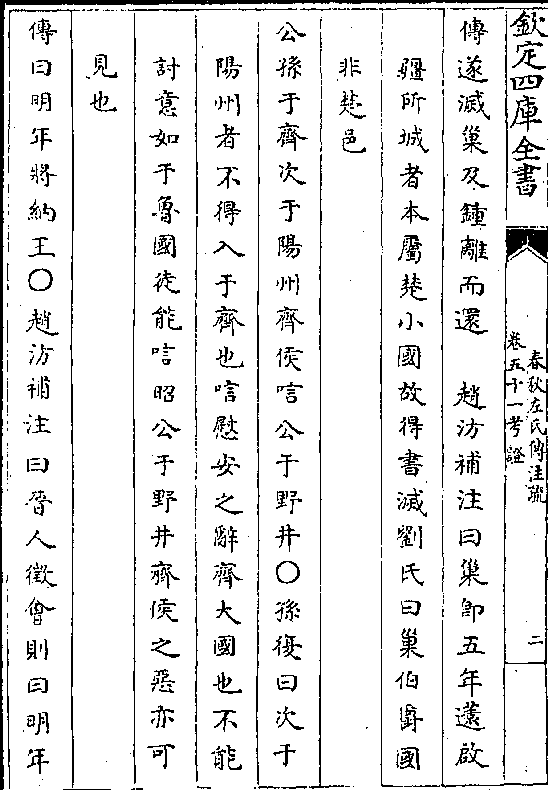 欽定四庫全書
春秋左氏傳注疏
卷五十一考證
二
傳遂滅巢及鍾離而還　趙汸補注曰巢即五年薳啟
疆所城者本屬楚小國故得書滅劉氏曰巢伯爵國
非楚邑
公孫于齊次于陽州齊侯唁公于野井〇孫復曰次于
陽州者不得入于齊也唁慰安之辭齊大國也不能
討意如于魯國徒能唁昭公于野井齊侯之惡亦可
見也
傳曰明年將納王〇趙汸補注曰晉人徵會則曰明年